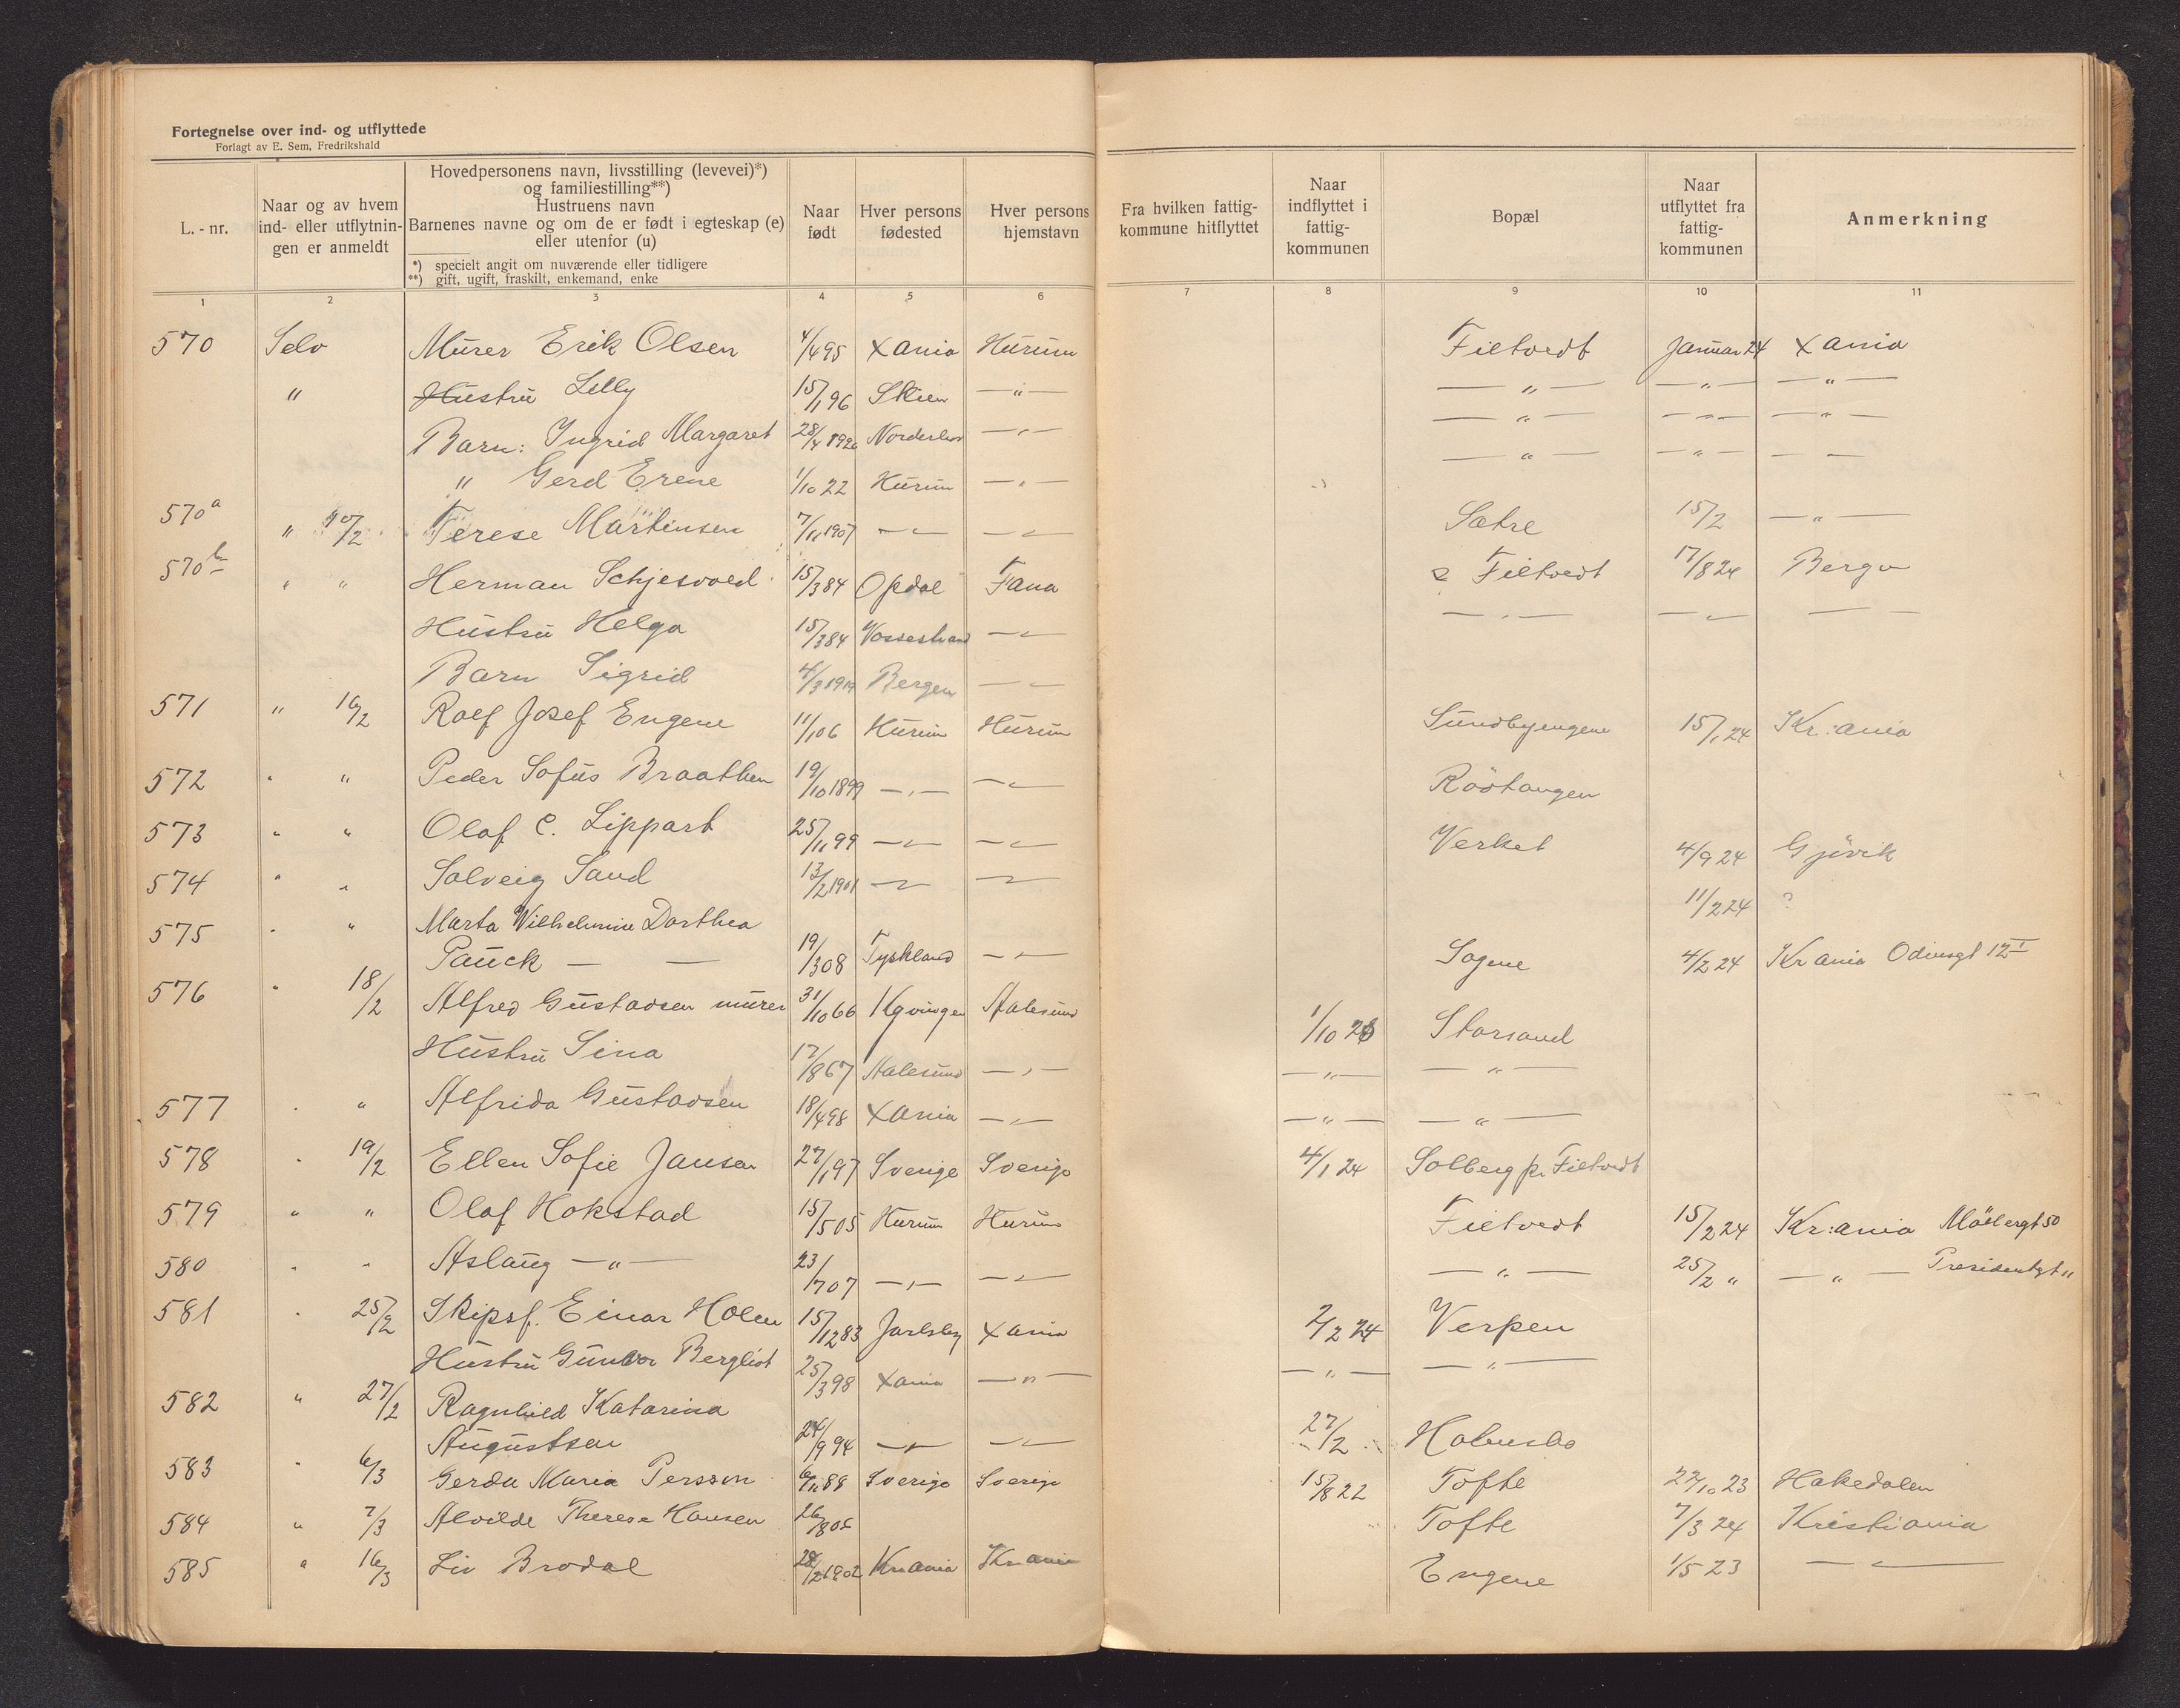 Fortegnelse over ind- og utflyttede
Forlagt av E. Sem, Fredrikshald
L.-nr.
Naar og av hvem ind- eller utflytnin- gen er anmeldt
Hovedpersonens navn, livsstilling (levevei)*) og familiestilling**) Hustruens navn Barnenes navne og om de er født i egteskap (e) eller utenfor (u)
*) specielt angit om nuværende eller tidligere
**) gift, ugift, fraskilt, enkemand, enke
Naar født
Hver persons fødested
Hver persons hjemstavn
Fra hvilken fattig- kommune hitflyttet
Naar indflyttet i fattig- kommunen
Bopæl
Naar utflyttet fra fattig- kommunen
Anmerkning
1 2 3 4 5 6 7 8 9 10 11
570 Selv Murer Erik Olsen 4/4 95 Xania Hurum Filtvedt Januar 24 Xania
" Hustru Lilly 15/1 96 Skien —"— —"— —"— —"—
Barn: Ingrid Margaret 28/4 1920 —"— —"— —"— —"—
" Gerd Erene 1/10 22 Hurum —"— —"— —"— — —
570a " 10/2 Terese Martinsen 7/11 1907 —"— —"— Sætre 15/2 —"—
570b " " Herman Schjesvoed 15/3 84 Opdal Fana Filtvedt 17/8 24 Bergen
Hustru Helga 15/3 84 Vossestrand —"— —"— —"— — —
Barn Sigrid 4/3 1919 Bergen —"—
571 " 16/2 Rolf Josef Engene 11/1 06 Hurum Hurum Sundbyengene 15/1 24 Kr:ania
572 " " Peder Sofus Braathen 19/10 1899 —"— —"— Rödtangen
573 " " Olaf C. Lippart 25/11 99 —"— —"— Verket 4/9 24 Gjövik
574 " " Solveig Sand 13/2 1901 —"— —"— 11/2 24 ?
575 " " Marta Vilhelmine Dorthea
Pauck — — 19/3 08 Tyskland —"— Sogene 4/2 24 Krania Odinsgt 12 I
576 " 18/2 Alfred Gustavsen murer 31/10 66 Kgvinger Aalesund 1/10 23 Storsand
Hustru Sina 17/8 67 Aalesund —"— —"— —"—
577 " " Alfrida Gustavsen 18/4 98 Xania —"— —"— —"—
578 " 19/2 Ellen Sofie Jansen 27/1 97 Sverige Sverige 4/1 24 Solberg pr. Filtvedt
579 " " Olaf Hokstad 15/5 05 Hurum Hurum Filtvedt 15/2 24 Kr:ania
580 " " Aslaug —"— 23/7 07 —"— —"— —"— 25/2 " —"— Presidentgt 11
581 " 25/2 Skipsf. Einar Holen 15/12 83 Jarlsbg Xania 2/2 24 Verpen
Hustru Gunvor Bergliot 25/3 98 Xania —"— —"— —"—
582 " 27/2 Ragnhild Katarina
Augustsen 24/9 94 —"— —"— 27/2 Holmsbo
583 " 6/3 Gerda Maria Persson 6/11 88 Sverige Sverige 15/8 22 Tofte 22/10 23 Hakedalen
584 " 7/3 Alvilde Therese Hansen 26/8 05 Tofte 7/3 24 Kristiania
585 " 16/3 Liv Brodal 28/2 1902 Krania Krania Engene 1/5 23 —"—